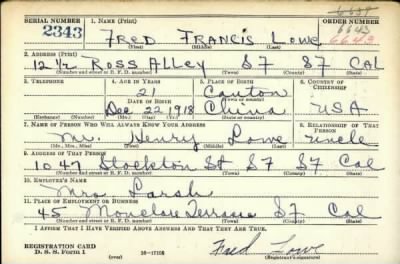 SERIAL NUMBER 1. NAME (Print) ORDER NUMBER
2343 FRED FRANCIS LOWE 6643
(First) (Middle) (Last)
2. ADDRESS (Print)
12 1/2 ROSS ALLEY S7 S7 CAL
(Number and street or R. F. D. number) (Town) (County) (State)
3. TELEPHONE 4. AGE IN YEARS 5. PLACE OF BIRTH 6. COUNTRY OF CITIZENSHIP
21 Canton
DATE OF BIRTH (Town or county)
Dec 22 1918 China USA
(Exchange) (No.) (Mo.) (Day) (Yr.) (State or country)
7. NAME OF PERSON WHO WILL ALWAYS KNOW YOUR ADDRESS 8. RELATIONSHIP OF THAT PERSON
Mr. Henry Lowe uncle
(Mr., Mrs., Miss) (First) (Middle) (Last)
9. ADDRESS OF THAT PERSON
1047 Stockton St S7 S7 Cal
(Number and street or R. F. D. number) (Town) (County) (State)
10. EMPLOYER'S NAME
Mrs
11. PLACE OF EMPLOYMENT OR BUSINESS
45 Terrasse S7 Cal
(Number and street or R. F. D. number) (Town) (County) (State)
I AFFIRM THAT I HAVE VERIFIED ABOVE ANSWERS AND THAT THEY ARE TRUE.
REGISTRATION CARD
D. S. S. Form 1 16-17105 Fred Lowe
(Registrant's signature)